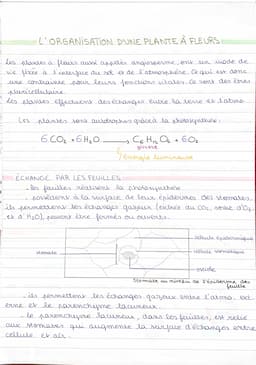 L'ORGANISATION D'UNE PLANTE À FLEURS
Les plantes à fleurs aussi appelés angiosperme, ont un mode de
vie fixée à l'interface du sol et de l'atmosphère. Ce qui est donc
une contrainte pour leurs fonctions vitales. Ce sont des êtres
pluricellulaire.
Les plantes effectuent des échanges entre la terre et l'atmo.
Les plantes sont autotrophes grâce à la photosynthèse.
6CO₂ + 6H₂O → C₆H₁₂O₆ + 6O₂
glucose
énergie lumineuse
ÉCHANGE PAR LES FEUILLES
- les feuilles réalisent la photosynthèse
- possèdent à la surface de leurs épidermes des stomates,
ils permettent les échanges gazeux (entrée du CO₂, sortie d'O₂
et d'H₂O), peuvent être fermés ou ouverts.
cellule épidermique
stomate
cellule stomatique
ostiole
Stomate au niveau de l'épiderme des
feuille
- ils permettent les échanges gazeux entre l'atmo. ex
erne et le parenchyme lacuneux.
- le parenchyme lacuneux, dans les feuilles, est relié
aux stomates qui augmente la surface d'échanges entre
cellule et air.